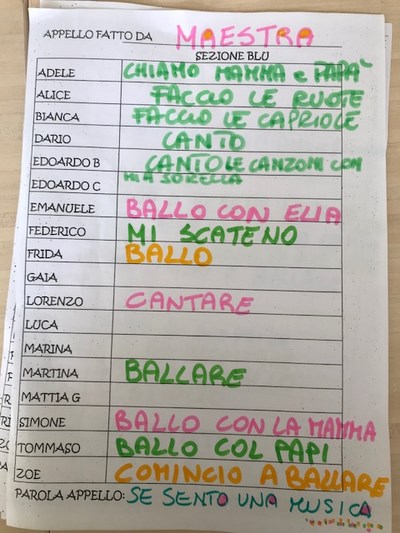 APPELLO FATTO DA MAESTRA
SEZIONE BLU
ADELE CHIAMO MAMMA e PAPA'
ALICE FACCIO LE RUOTE
BIANCA FACCIO LE CAPRIOLE
DARIO CANTO
EDOARDO B CANTO LE CANZONI CON
EDOARDO C MIA SORELLA
EMANUELE BALLO CON ELIA
FEDERICO MI SCATENO
FRIDA BALLO
GAIA
LORENZO CANTARE
LUCA
MARINA
MARTINA BALLARE
MATTIA G
SIMONE BALLO CON LA MAMMA
TOMMASO BALLO COL PAPI
ZOE COMINCIO A BALLARE
PAROLA APPELLO: SE SENTO UNA MUSICA